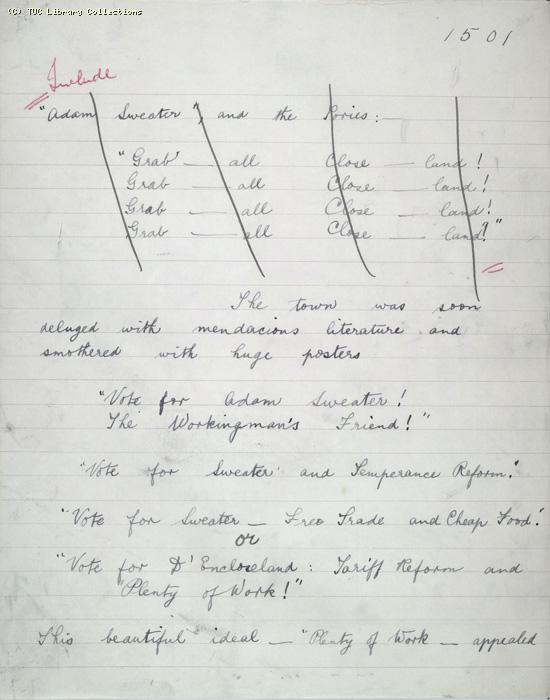 (C) TUC Library Collections
1501
Include
"Adam Sweater", and the Tories:—
"Grab' — all Close — land!
Grab — all Close — land!
Grab — all Close — land!
Grab — all Close — land!"
The town was soon
deluged with mendacious literature and
smothered with huge posters
"Vote for Adam Sweater!
The Workingman's Friend!"
"Vote for Sweater and Temperance Reform."
"Vote for Sweater — Free Trade and Cheap Food."
or
"Vote for D'Encloseland: Tariff Reform and
Plenty of Work!"
This beautiful ideal — "Plenty of Work — appealed